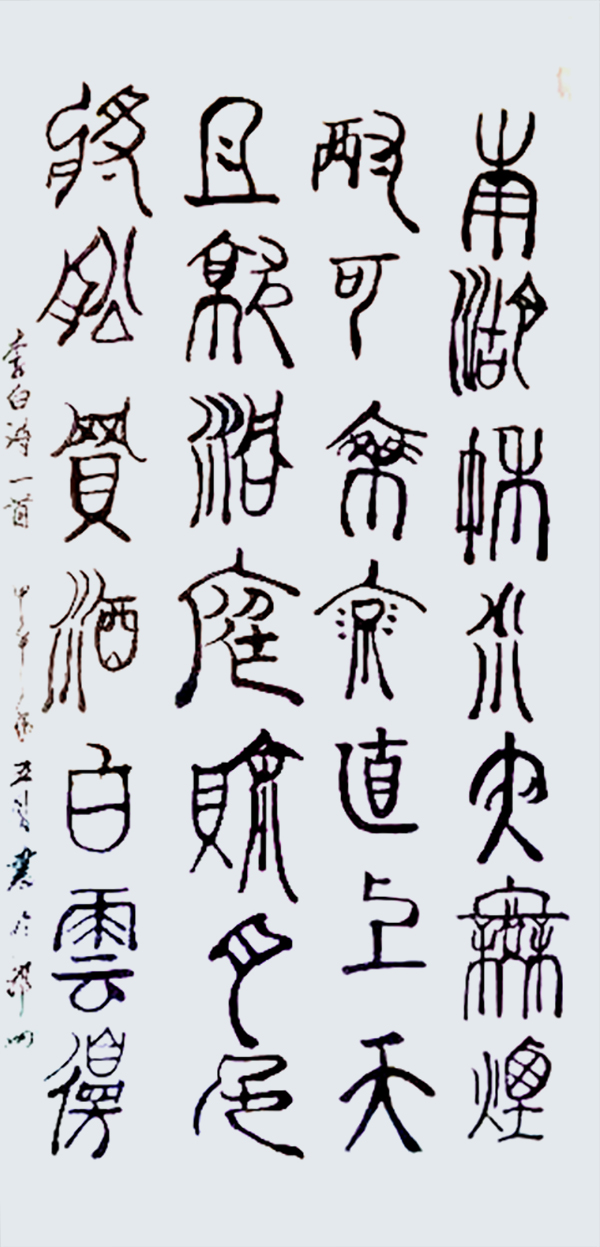 南湖秋水夜無煙
耐可乘流直上天
且就洞庭賒月色
將船買酒白雲邊
李白詩一首